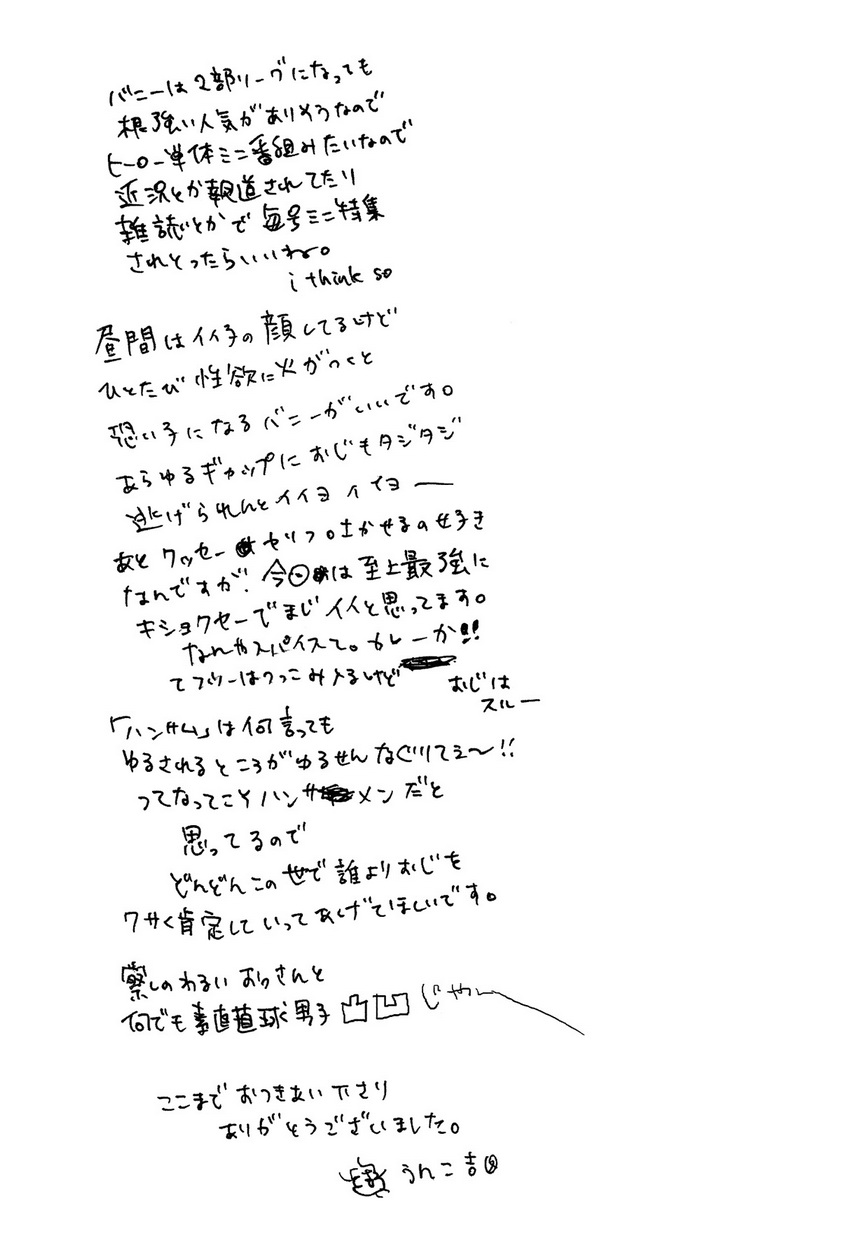 バニーは2部リーグになっても
根強い人気がありそうなので
ヒーロー単体ミニ番組みたいなので
近況とか報道されてたり
雑誌とかで毎号ミニ特集
されとったらいいね。
i think so
昼間はイイ子の顔してるけど
ひとたび性欲に火がつくと
恐い子になるバニーがいいです。
あらゆるギャップにおじもタジタジ
逃げられんとイイヨイイヨー
あとクッセーセリフ吐かせるの好き
なんですが、今回は至上最強に
キショクセーでまじイイと思ってます。
なんやスパイスて。カレーか!!
てフツーはつっこみ入るけど
おじは
スルー
「ハンサム」は何言っても
ゆるされるところがゆるせんなぐりてえ〜!!
ってなってこそハンサメンだと
思ってるので
どんどんこの世で誰よりおじを
クサく肯定していってあげてほしいです。
察しのわるいおっさんと
何でも素直直球男子凸凹じゃー
ここまでおつきあい下さり
ありがとうございました。
うんこ吉